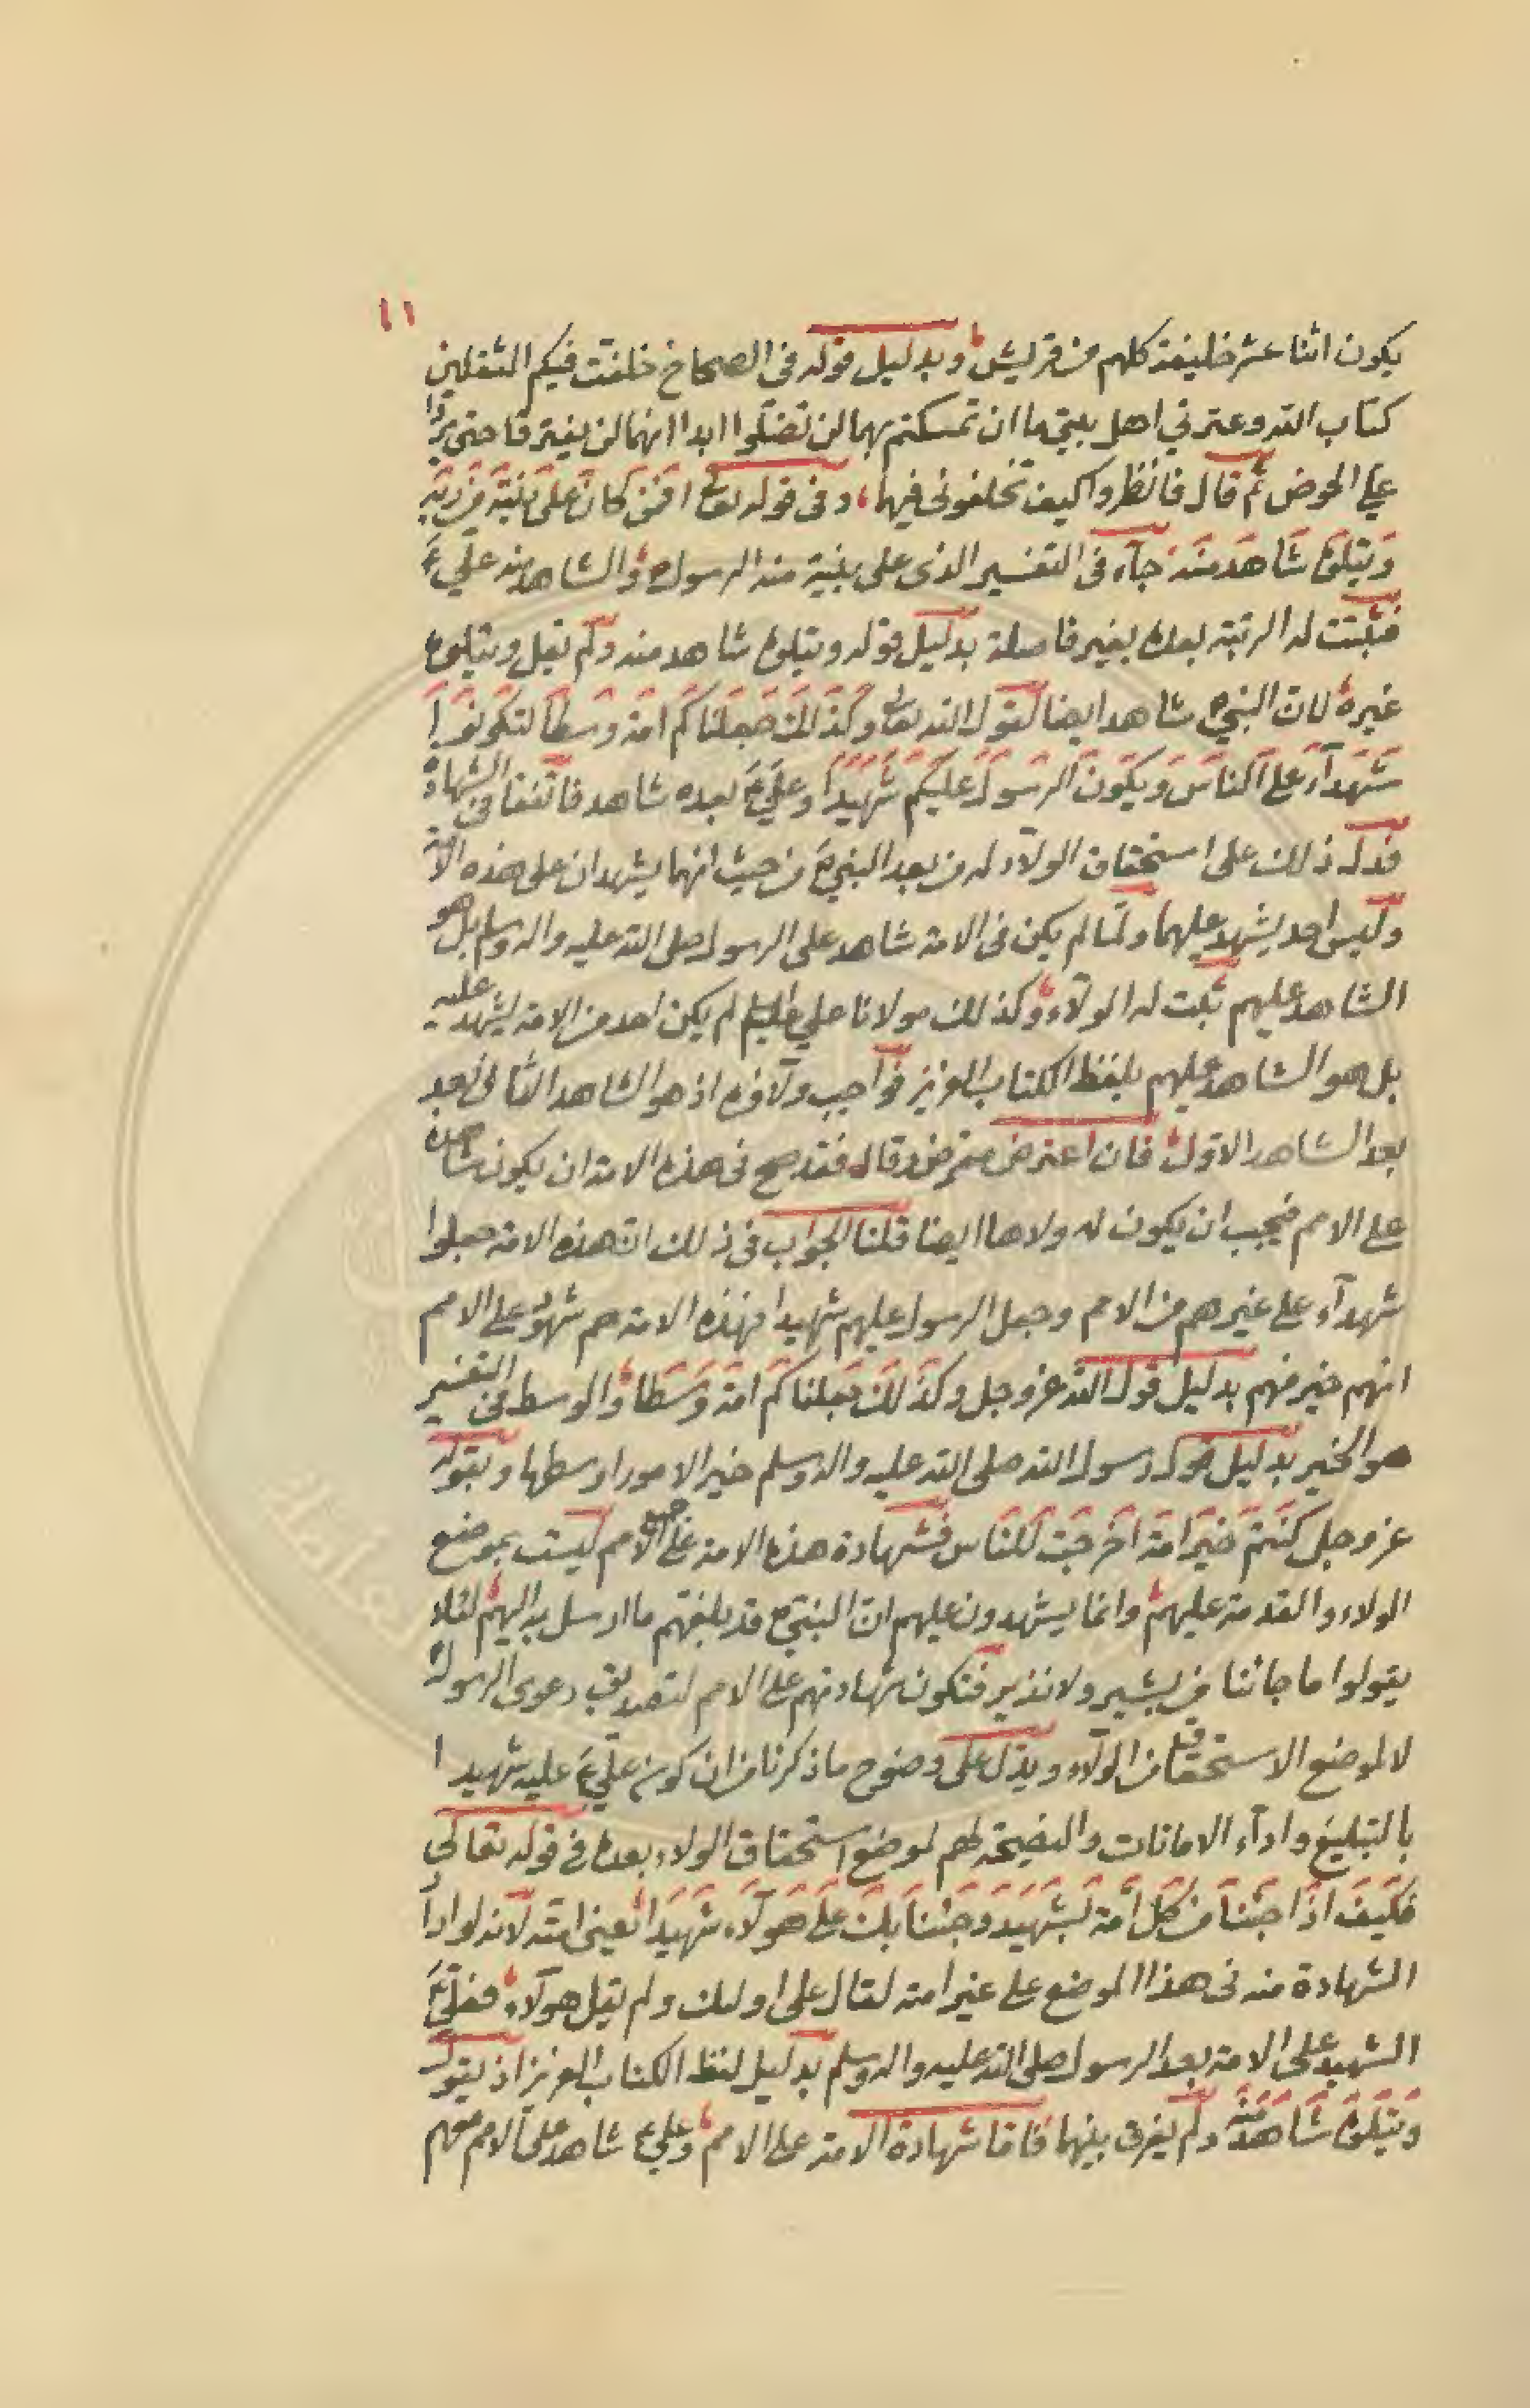 ١١
يكون اثنا عشر خليفة كلهم من قريش وبدليل قوله فى الصحاح خلفت فيكم الثقلين
كتاب الله وعترتي اهل بيتي ما ان تمسكتم بهما لن تضلوا ابدا انهما لن يفترقا حتى يردا
علي الحوض ثم قال فانظروا كيف تخلفوني فيهما وفى قوله تعالى افمن كان على بينة من ربه
ويتلوه شاهد منه جآء فى التفسير الذى على بينة منه الرسول ص والشاهد منه علي ع
فثبتت له الرتبة بعده بغير فاصلة بدليل قوله ويتلوه شاهد منه ولم يقل ويتلوه
غيره لان النبي ص شاهد ايضا لقول الله تعالى وكذالك جعلناكم امة وسطا لتكونوا
شهدآء على الناس ويكون الرسول عليكم شهيدا وعلي ع بعده شاهد فاتفقا فى الشهادة
فدل ذلك على استحقاق الولآء له من بعد النبي ص من حيث انهما يشهدان على هذه الامة
وليس احد يشهد عليهما ولما لم يكن فى الامة شاهد على الرسول صلى الله عليه واله وسلم بل هو
الشاهد عليهم ثبت له الولآء وكذلك مولانا علي عليه السلم لم يكن احد من الامة ليشهد عليه
بل هو الشاهد عليهم بلفظ الكتاب العزيز فواجب ولاؤه اذ هو الشاهد الثانى بعد
بعد الشاهد الاول فان اعترض معترض وقال فقد صح فى هذه الامة ان يكون شاهدة
على الامم فيجب ان يكون له ولاها ايضا قلنا الجواب فى ذلك ان هذه الامة جعلوا
شهدآء على غيرهم من الامم وجعل الرسول عليهم شهيدا فهذه الامة هم شهود على الامم
انهم خير منهم بدليل قول الله عز وجل وكذلك جعلناكم امة وسطا والوسط فى التفسير
هو الخير بدليل قول رسول الله صلى الله عليه واله وسلم خير الامور اوسطها وبقوله
عز وجل كنتم خير امة اخرجت للناس فشهادة هذه الامة على جميع الامم ليست بموضع
الولاء والقدمة عليهم وانما يشهدون عليهم ان النبي ص قد بلغهم ما ارسل به اليهم لئلا
يقولوا ما جائنا من بشير ولا نذير فتكون شهادتهم على الامم لتصديق دعوى الرسول
لا لموضع الاستحقاق من الولآء ويدل على وضوح ما ذكرنا من ان كون علي ع عليه شهيدا
بالتبليغ وادآء الامانات والنصيحة لهم لموضع استحقاق الولاء بعده فى قوله تعالى
فكيف اذا جئنا من كل امة بشهيد وجئنا بك على هولآء شهيدا يعنى امته لانه لو اراد
الشهادة منه فى هذا الموضع على غير امته لقال على اوليك ولم يقل هولآء فعلي ع
الشهيد على الامة بعد الرسول صلى الله عليه واله وسلم بدليل لفظ الكتاب العزيز اذ يقول
ويتلوه شاهد منه ولم يفرق بينهما فاما شهادة الامة على الامم وعلي ع شاهد على الامم معهم